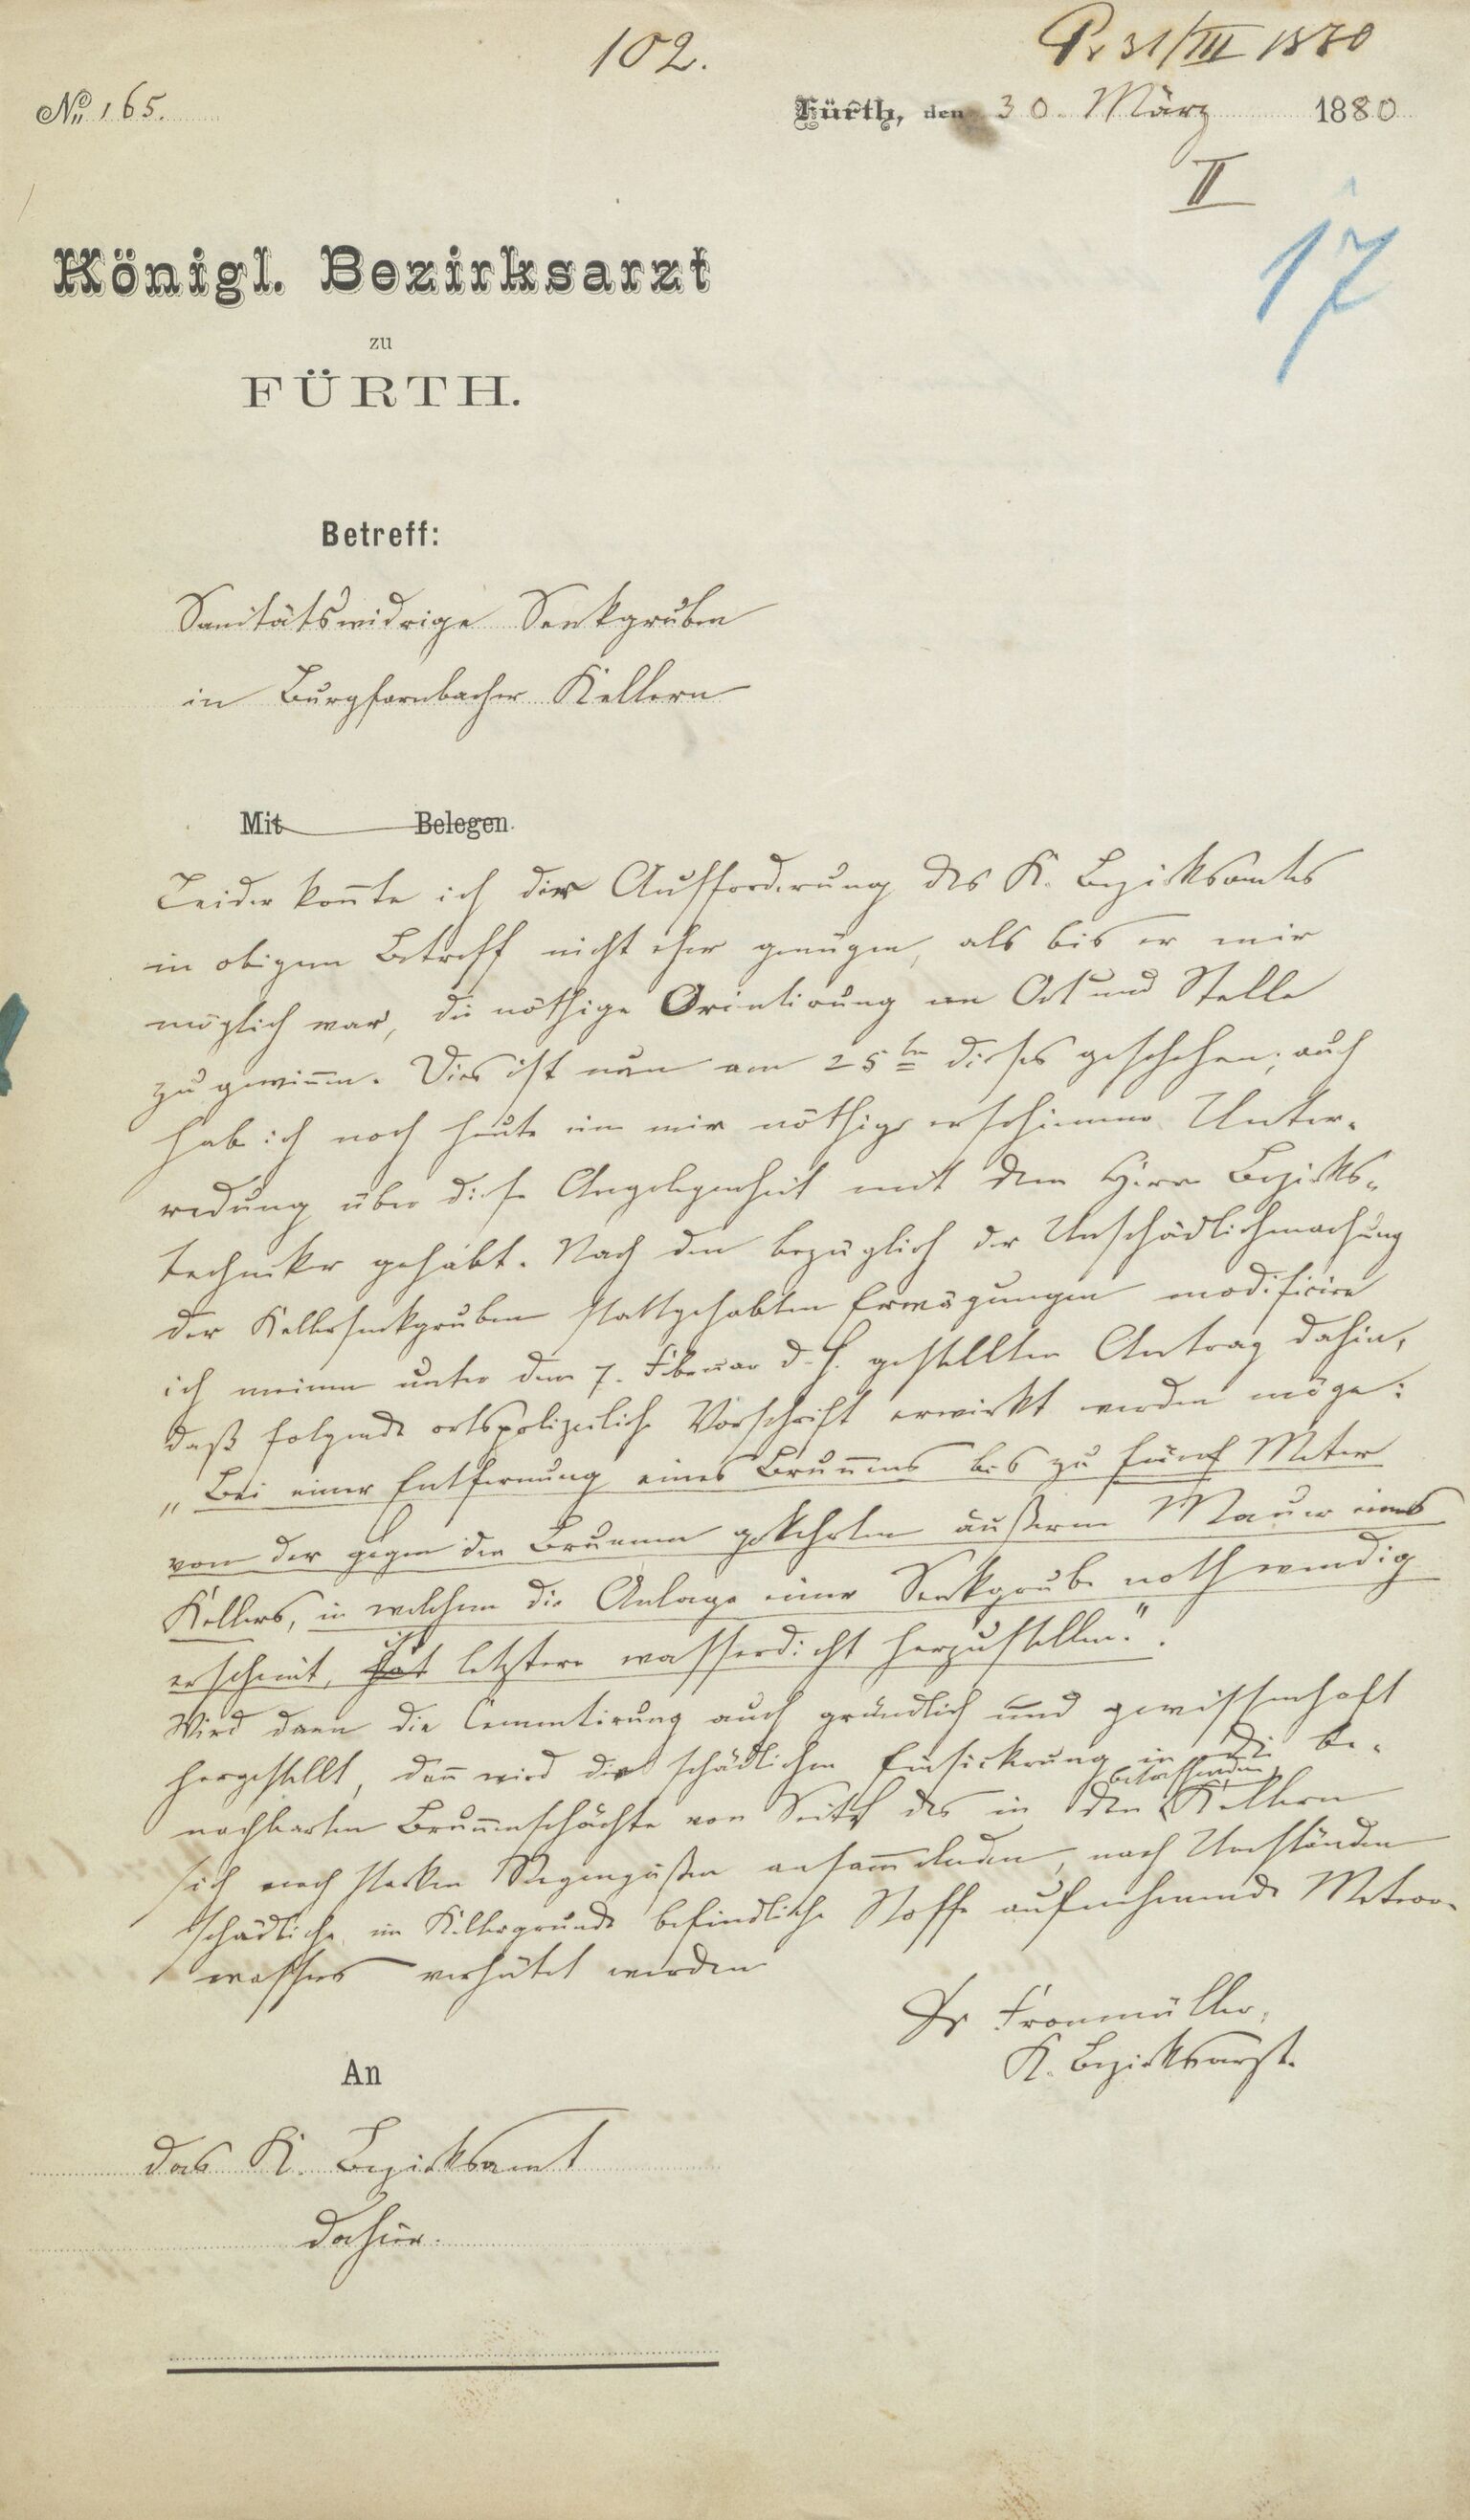 102.
Pr 31/III 1880
No. 165.
Fürth, den 30. März 1880
II
17
Königl. Bezirksarzt
zu
FÜRTH.
Betreff:
Sanitätswidrige Senkgruben
in Burgfarnbacher Kellern
Mit Belegen.
Leider konnte ich der Aufforderung des K. Bezirksamtes
in obigem Betreff nicht eher genügen, als bis er mir
möglich war, die nöthige Orientirung an Ort und Stelle
zu gewinnen. Dies ist nun am 25ten dieses geschehen; auch
hab ich noch heute eine mir nöthig erschienene Unter-
redung über diese Angelegenheit mit dem Herrn Bezirks-
techniker gehabt. Nach den bezüglich der Unschädlichmachung
der Kellersenkgruben stattgehabten Erwägungen modificire
ich meinen unter dem 7. Februar d. J. gestellten Antrag dahin,
daß folgende ortspolizeiliche Vorschrift erwirkt werden möge:
„Bei einer Entfernung eines Brunnens bis zu fünf Meter
von der gegen den Brunnen gekehrten äußeren Mauer eines
Kellers, in welchem die Anlage einer Senkgrube nothwendig
erscheint, ist letztere wasserdicht herzustellen.“.
Wird dann die Cementirung auch gründlich und gewissenhaft
hergestellt, dann wird die schädlichen Einsickerung in die be-
nachbarten Brunnenschächte von Seite des in den betreffenden Kellern
sich nach starken Regengüßen ansammelnden, nach Umständen
schädliche im Kellergrunde befindliche Stoffe aufnehmende Meteor-
wassers verhütet werden
Dr Fronmüller,
K. Bezirksarzt.
An
das K. Bezirksamt
dahier.